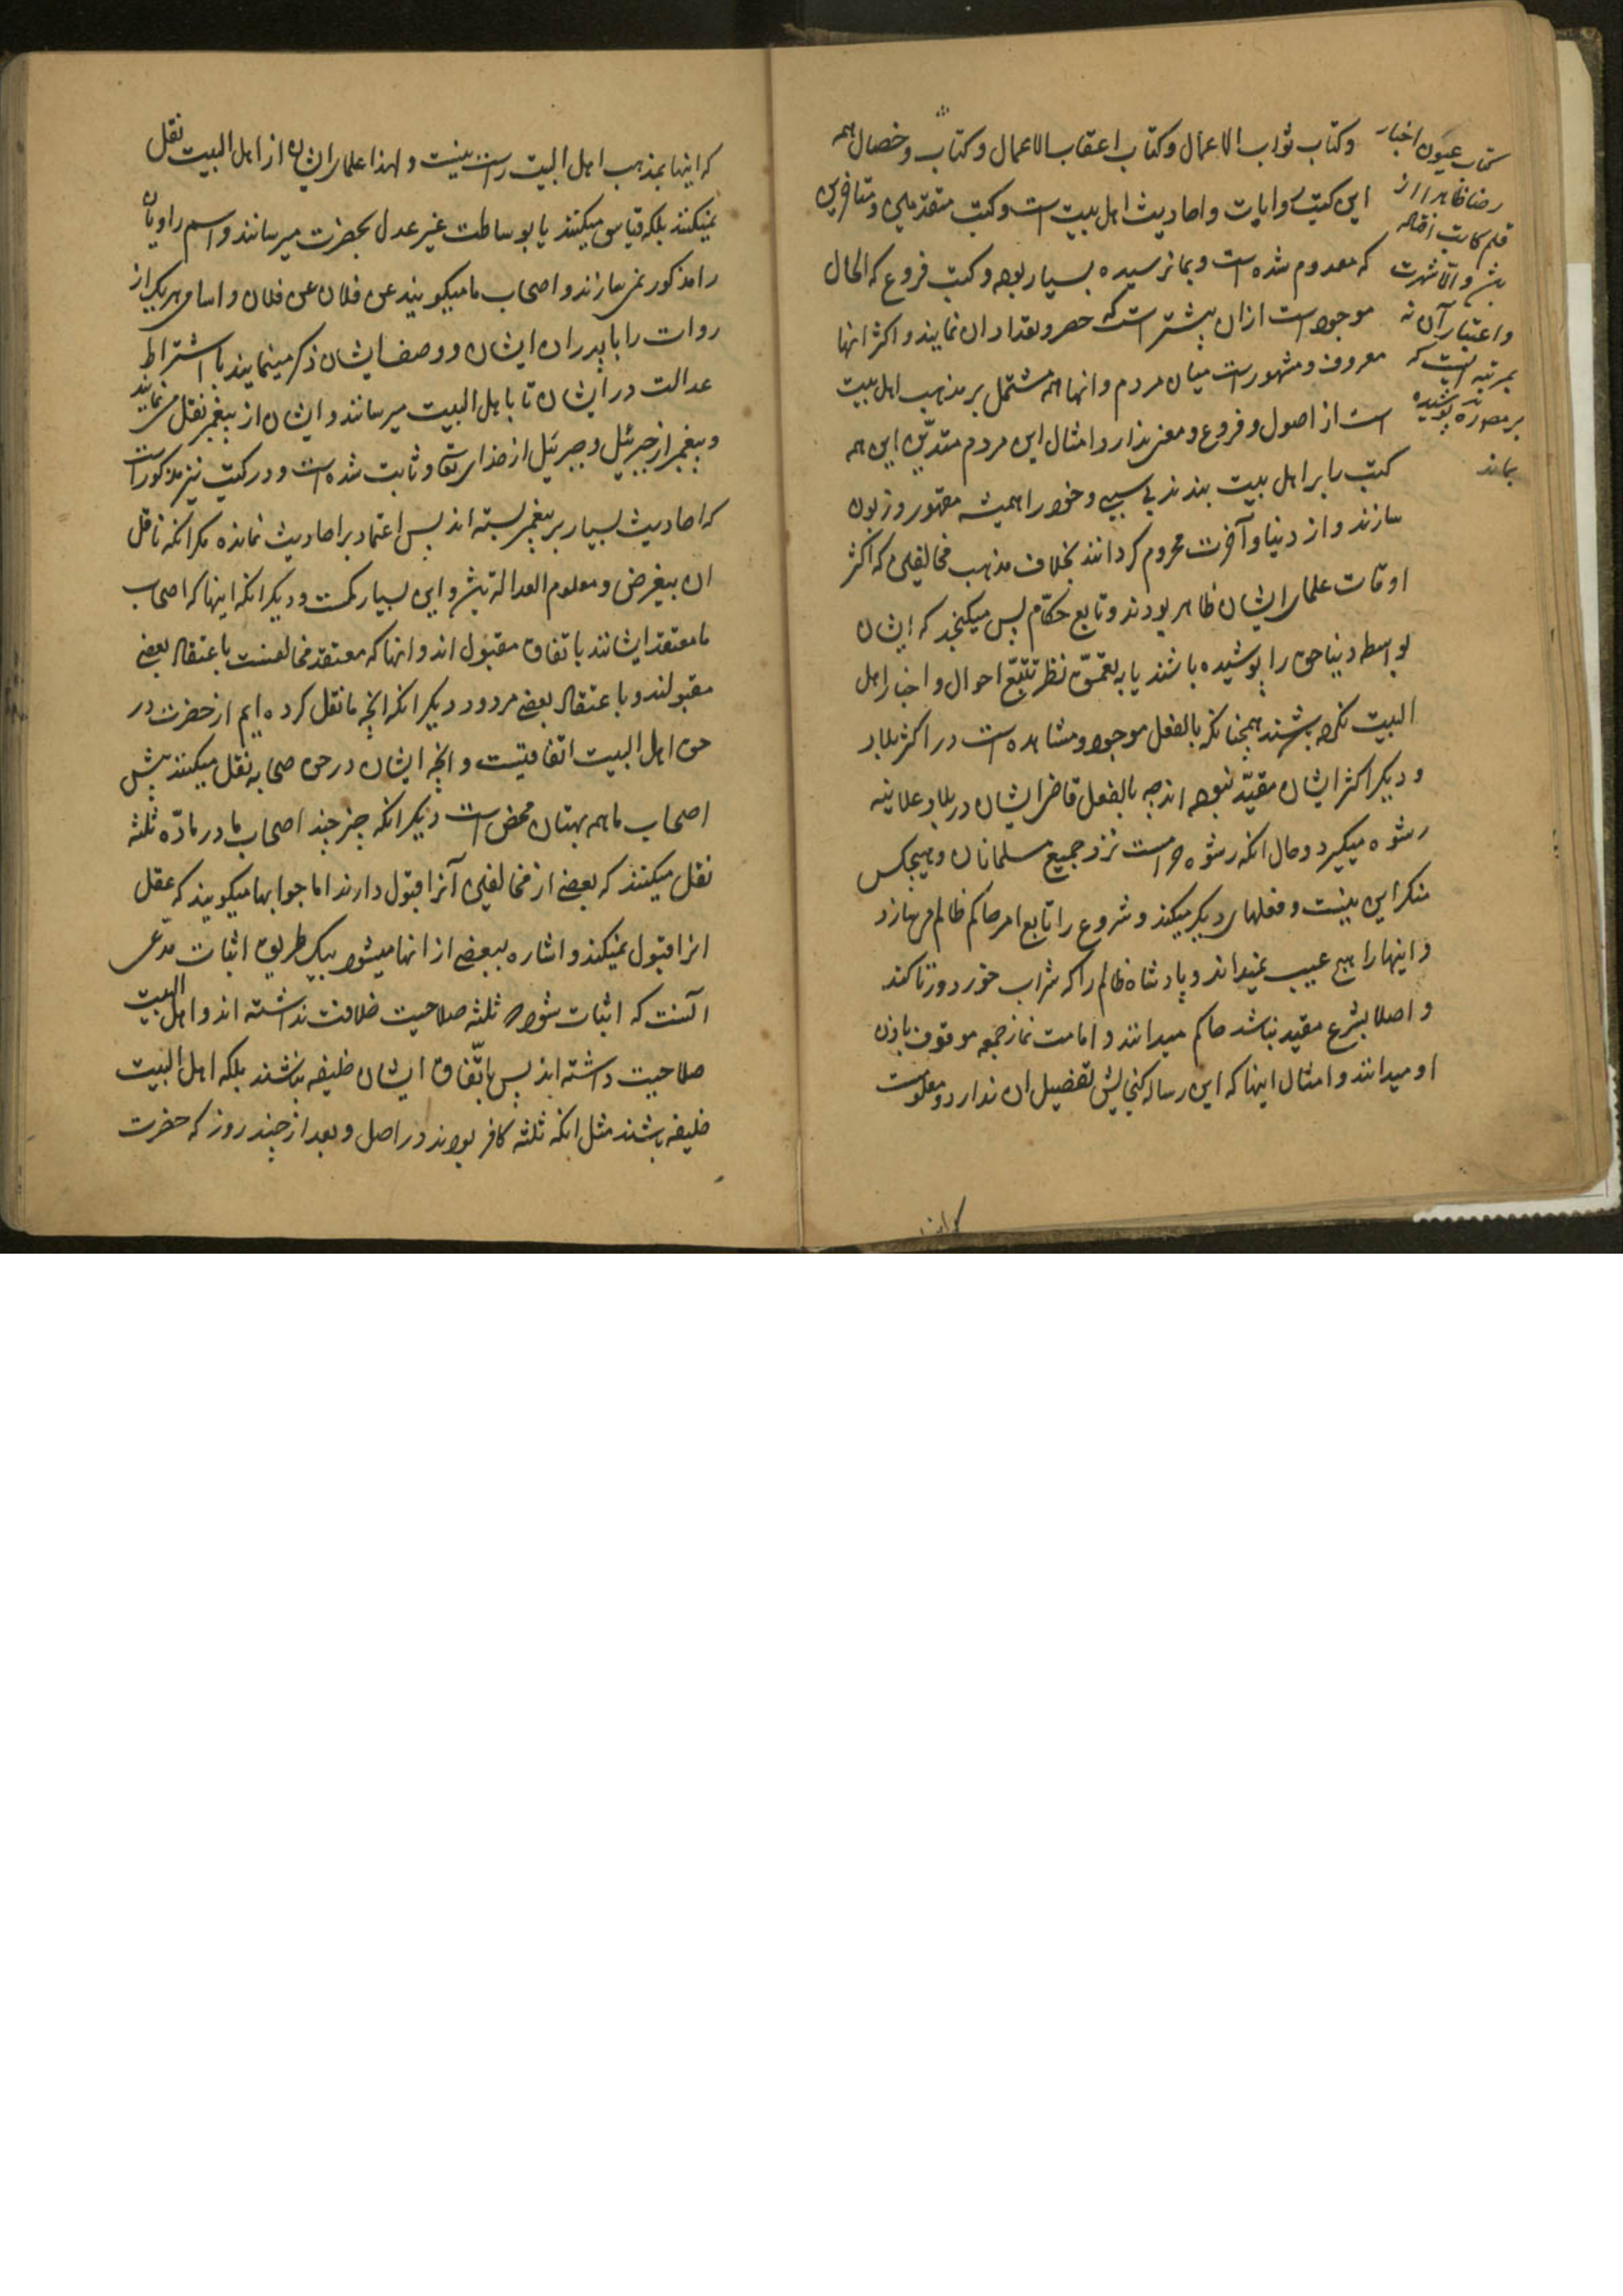 وکتاب ثواب الاعمال وکتاب اعقاب الاعمال وکتاب وخصال همه
این کتب روایات واحادیث اهل بیت است وکتب متقدمین ومتاخرین
که معدوم شده است وبما نرسیده بسیار بوده وکتب فروع که الحال
موجود است ازان بیشتر است که حصر وتعداد ان نمایند واکثر انها
معروف ومشهور است میان مردم وانها همه مشتمل بر مذهب اهل بیت
است از اصول وفروع ومعنی ندارد امثال این مردم متدین این همه
کتب را بر اهل بیت بندند بی سببی وخود را همیشه مقهور وزبون
سازند واز دنیا وآخرت محروم کردانند بخلاف مذهب مخالفین که اکثر
اوقات علمای ایشان ظاهر بودند وتابع حکام پس میکنجد که ایشان
بواسطه دنیا حق را پوشیده باشند یا به تعمق نظر تتبع احوال واخبار اهل
البیت نکرده باشند همچنانکه بالفعل موجود ومشاهده است در اکثر بلاد
ودیکر اکثر ایشان مقید نبوده اند چه بالفعل قاضی ایشان در بلاد علانیه
رشوه میکیرد وحال انکه رشوه حرامست نزد جمیع مسلمانان وهیچکس
منکر این نیست وفعلهای دیکر میکند وشروع را تابع امر حاکم ظالم میسازد
واینها را هیچ عیب نمیداند وپادشاه ظالم را که شراب خورد وزنا کند
واصلا بشرع مقید نباشد حاکم میدانند وامامت نماز جمعه موقوف باذن
او میدانند وامثال اینها که این رساله کنجایش تفضیل ان ندارد ومعلومست
کتاب عیون اخبار
رضا ظاهرا از
قلم کاتب افتاده
باشد والا شهرت
واعتبار آن نه
بمرتبه ایست که
بر مصنف پوشیده
بماند
که اینها
که اینها بمذهب اهل البیت راست نیست ولهذا علمای ایشان از اهل البیت نقل
نمیکنند بلکه قیاس میکنند یا بوساطت غیر عدل بحضرت میرسانند واسم راویان
را مذکور نمی سازند واصحاب ما میکویند عن فلان عن فلان واسامی هر یک از
روات را با پدران ایشان ووصف ایشان ذکر مینمایند با اشتراط
عدالت در ایشان تا باهل البیت میرسانند وایشان از پیغمبر نقل می نمایند
وپیغمبر از جبرئیل وجبرئیل از خدای تعالی وثابت شده است ودر کتب نیز مذکور است
که احادیث بسیار بر پیغمبر بسته اند پس اعتماد بر احادیث نمانده مکر انکه ناقل
ان بیغرض ومعلوم العداله باشد واین بسیار کمست ودیکر انکه اینها که اصحاب
ما معتقد ایشانند باتفاق مقبول اند وانها که معتقد مخالفست باعتقاد بعضی
مقبولند وباعتقاد بعضی مردود دیکر انکه انچه ما نقل کرده ایم از حضرت در
حق اهل البیت اتفاقیست وانچه ایشان در حق صحابه نقل میکنند پیش
اصحاب ما همه بهتان محض است دیکر انکه چیز چند اصحاب ما در ماده ثلثه
نقل میکنند که بعضی از مخالفین آنرا قبول دارند اما جوابها میکویند که عقل
انرا قبول نمیکند واشاره ببعضی از انها میشود بیک طریق اثبات مدعی
آنست که اثبات شود که ثلثه صلاحیت خلافت نداشته اند واهل البیت
صلاحیت داشته اند پس باتفاق ایشان خلیفه نباشند بلکه اهل البیت
خلیفه باشند مثل انکه ثلثه کافر بودند در اصل وبعد از چند روز که حضرت